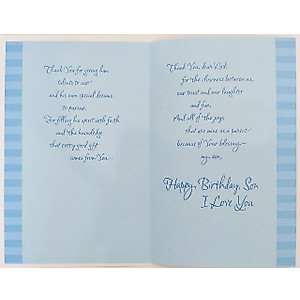 Thank You for giving him
talents to use
and his own special dreams
to pursue.
For filling his spirit with faith
and the knowledge
that every good gift
comes from You...
Thank You, dear Lord,
for the closeness between us,
our trust and our laughter
and fun,
And all of the joys
that are mine as a parent
because of Your blessing –
my son.
Happy Birthday, Son
I Love You